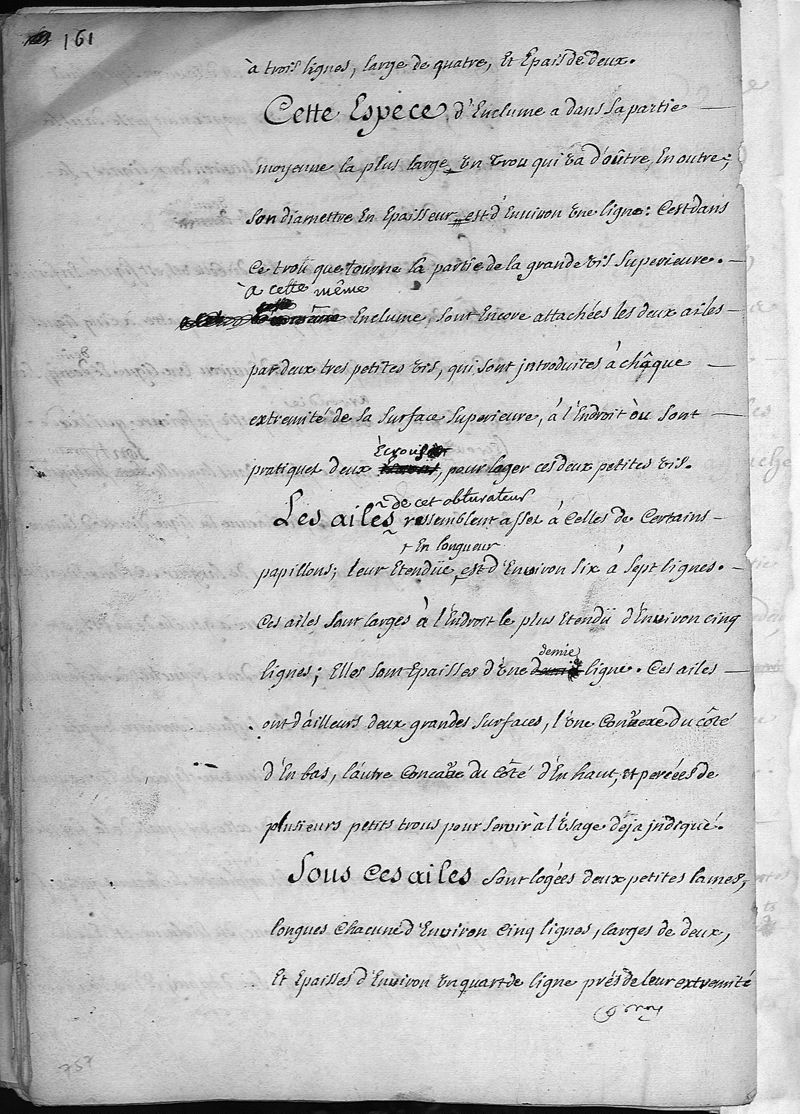 161
à trois lignes, large de quatre, Et Epais de deux.
Cette Espece d'Enclume a dans sa partie
moyenne la plus large un trou qui va d'oûtre, En outre;
son diamettre En Epaisseur est d'Environ une ligne: C'est dans
Ce trou que tourne la partie de la grande vis Superieure.
à cette même
Enclume, sont Encore attachées les deux ailes
par deux tres petites vis, qui sont introduites à châque
extremité de sa surface Superieure, à l'Endroit où sont
Ecrous
pratiquet deux, pour loger ces deux petites vis.
de cet obturateur
Les ailes ressemblent asset à Celles de Certains
En longueur
papillons; leur Etendüe est d'Environ six à Sept lignes.
Ces ailes sont larges à l'Endroit le plus Etendü d'Environ cinq
demie
lignes; Elles sont Epaisses d'une ligne. Ces ailes
ont d'ailleurs deux grandes surfaces, l'une Convexe du côté
d'En bas, l'autre Concave du côté d'En haut, et percées de
plusieurs petits trous pour servir à l'Usage déja jndiqué.
Sous Ces ailes sont logées deux petites lames,
longues Chacune d'Environ Cinq lignes, larges de deux,
Et Epaisses d'Environ un quart de ligne prés de leur extremité
757